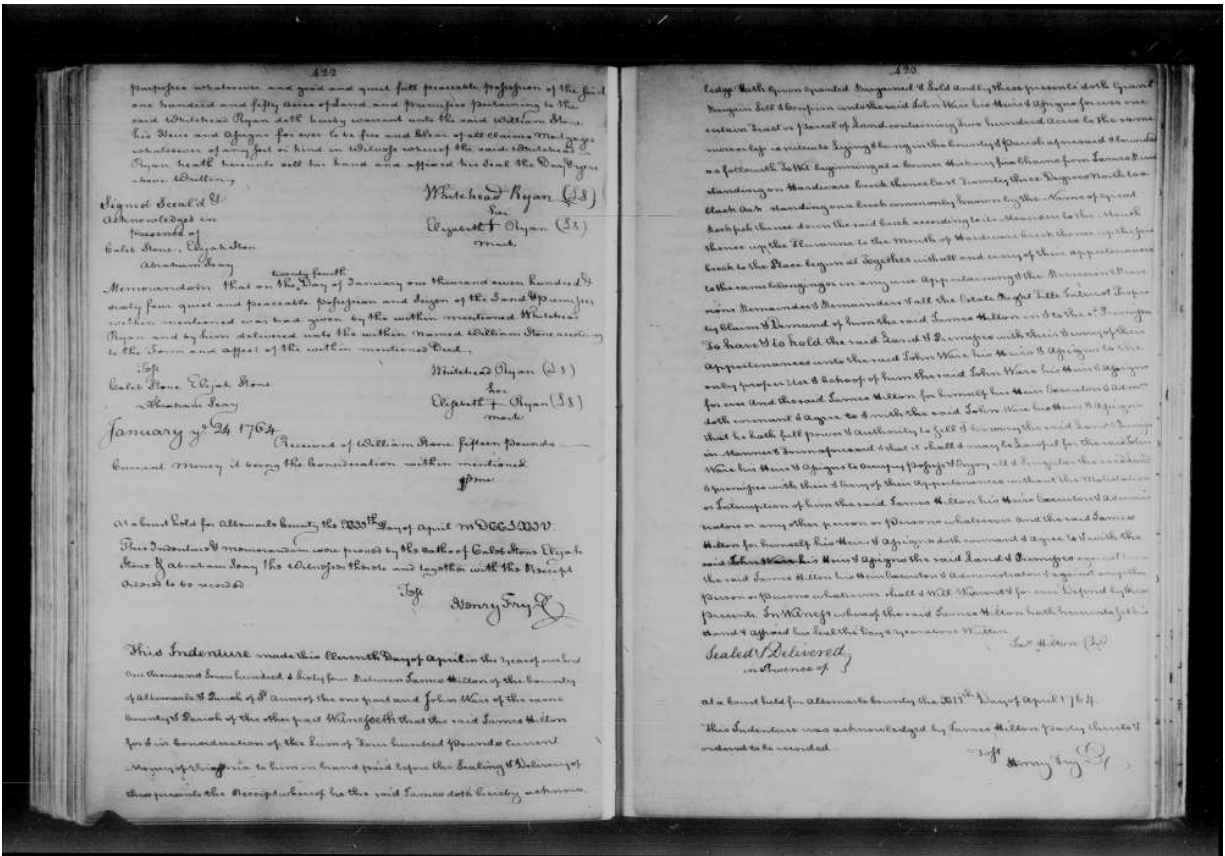 422
purposes whatsoever and good and quiet full peaceable possession of the said
one hundred and fifty acres of Land and premises pertaining to the
said Whitehead Ryan doth hereby warrant unto the said William Stone
his Heirs and Assigns for ever to be free and Clear of all claims Mortgages
whatsoever of any sort or kind in Witness whereof the said Whitehead
Ryan heath hereunto sett his hand and affixed his Seal the Day & year
above Written
Whitehead Ryan (LS)
Signed Seeal'd &
Acknowledged in
presence of
her
Elizabeth + Ryan (LS)
mark
Caleb Stone, Elijah Ston
Abraham Seay
twenty fourth
Memorandom that on the Day of January one thousand seven hundred &
sixty four quiet and peaceable possession and Seizen of the Land & premises
within mentioned was had given by the within mentioned Whitehead
Ryan and by him delivered unto the within Named William Stone according
to the Form and affect of the within mentioned Deed
Test
Whitehead Ryan (LS)
Caleb Stone Elijah Stone
her
Abraham Seay
Elizabeth + Ryan (LS)
mark
January ye 24 1764
Received of William Stone fifteen pounds
Current Money it being the Consideration within mentioned
At a Court held for Albemarle County the Day of April MDCCLXIV
This Indenture & memorandum were proved by the oaths of Caleb Stone Elijah
Stone & Abraham Seay the Witnesses thereto and together with the Receipt
Ordered to be recorded
Test
Henry Fry
This Indenture made this Eleventh Day of April in the year of our Lord
One thousand Seven hundred & Sixty four Between James Hilton of the County
of Albemarle & Parish of St Anne of the one part and John Ware of the same
County & Parish of the other part Witnesseth that the said James Hilton
for & in Consideration of the Sum of Four hundred pounds Current
Money of Virginia to him in hand paid before the Sealing & Delivery of
these presents the Receipt whereof he the said James doth hereby acknow
423
ledge Hath Given granted Bargained & Sold And by these presents doth Grant
Bargain Sell & Confirm unto the said John Ware his Heirs & Assigns for ever one
certain Tract or parcel of Land containing Two hundred Acres be the same
more or less scituate Lying & being in the County & Parish aforesaid & bounded
as followeth To Wit beginning at a corner Hickory
standing on Hardware Creek thence East Twenty three Degrees North to a
black Oak standing on a Creek commonly known by the Name of Great
Rockfish thence down the said Creek according to its Meanders to the Mouth
thence up the Fluvanna to the Mouth of Hardware Creek thence up the said
Creek to the Place begun at Together with all and every of their appertenances
to the same belonging or in any wise Appertaining & the Reversion & Rever
sions Remainder & Remainders & all the Estate Right Title Interest Proper
ty Claim & Demand of him the said James Hilton in & to the sd Premises
To have & to hold the said Land & Premises with their & every of their
Appertenances unto the said John Ware his Heirs & Assigns to the
only proper Use & behoof of him the said John Ware his Heirs & Assigns
for ever And the said James Hilton for himself his Heirs Executors & Admrs
doth covenant & Agree to & with the said John Ware his Heirs & Assigns
that he hath full power & Authority to sell & convey the said Land & Premises
in Manner & Form aforesaid & that it shall & may be Lawful for the said John
Ware his Heirs & Assigns to occupy possess & Enjoy all & Singular the said Land
& premises with their & Every of their Appertenances without the Molestation
or Interruption of him the said James Hilton his Heirs Executors & Adminis
trators or any other person or Persons whatsoever and the said James
Hilton for himself his Heirs & Assigns doth covenant & agree to & with the
said John Ware his Heirs & Assigns the said Land & Premises against him
the said James Hilton his Heirs Executors & Administrators & against any other
person or persons whatsoever shall & Will Warrant & for ever Defend by these
presents. In Witness whereof the said James Hilton hath hereunto set his
Hand & affixed his Seal the Day & year above Written
Jas Hilton (LS)
Sealed & Delivered
in Presence of
At a Court held for Albemarle County the Day of April 1764
This Indenture was acknowledged by James Hilton party thereto &
ordered to be recorded
Test
Henry Fry